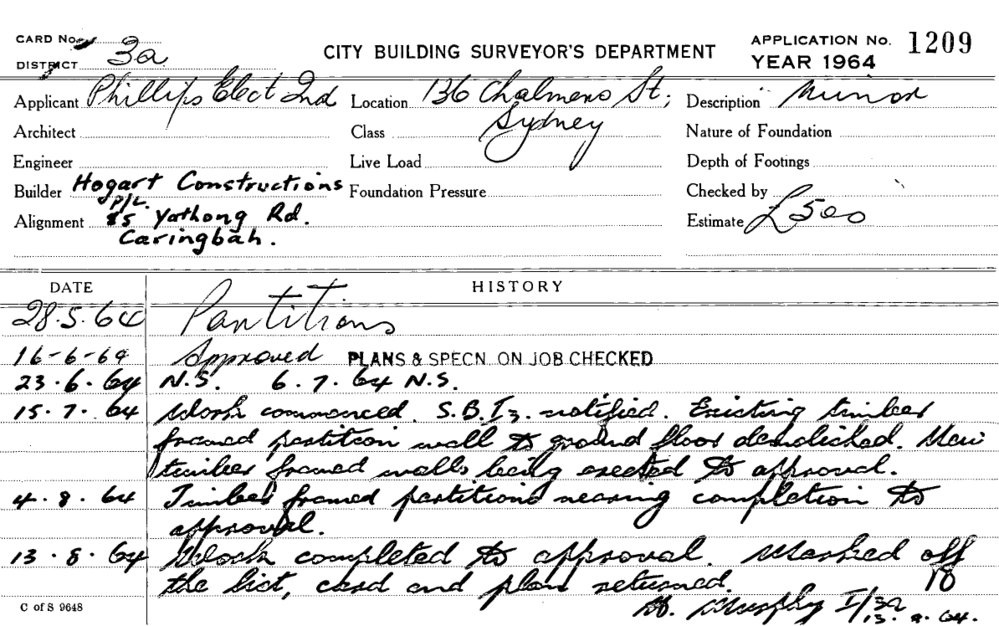 CARD No.
DISTRICT 3a
CITY BUILDING SURVEYOR'S DEPARTMENT
APPLICATION No. 1209
YEAR 1964
Applicant Phillips Elect Ind Location 136 Chalmers St; Description Minor
Sydney
Architect Class Nature of Foundation
Engineer Live Load Depth of Footings
Builder Hogart Constructions Foundation Pressure Checked by
P/L.
Alignment 85 Yathong Rd. Estimate £500
Caringbah.
DATE HISTORY
28.5.64 Partitions
16-6-64 Approved PLANS & SPECN. ON JOB CHECKED
23.6.64 N.S. 6.7.64 N.S.
15.7.64 Work commenced. S.B.I3. notified. Existing timber
framed partition wall to ground floor demolished. New
timber framed walls being erected to approval.
4.8.64 Timber framed partitions nearing completion to
approval.
13.8.64 Work completed to approval. Marked off
the list, card and plan returned.
Murphy I/3a
13.8.64.
C of S 9648